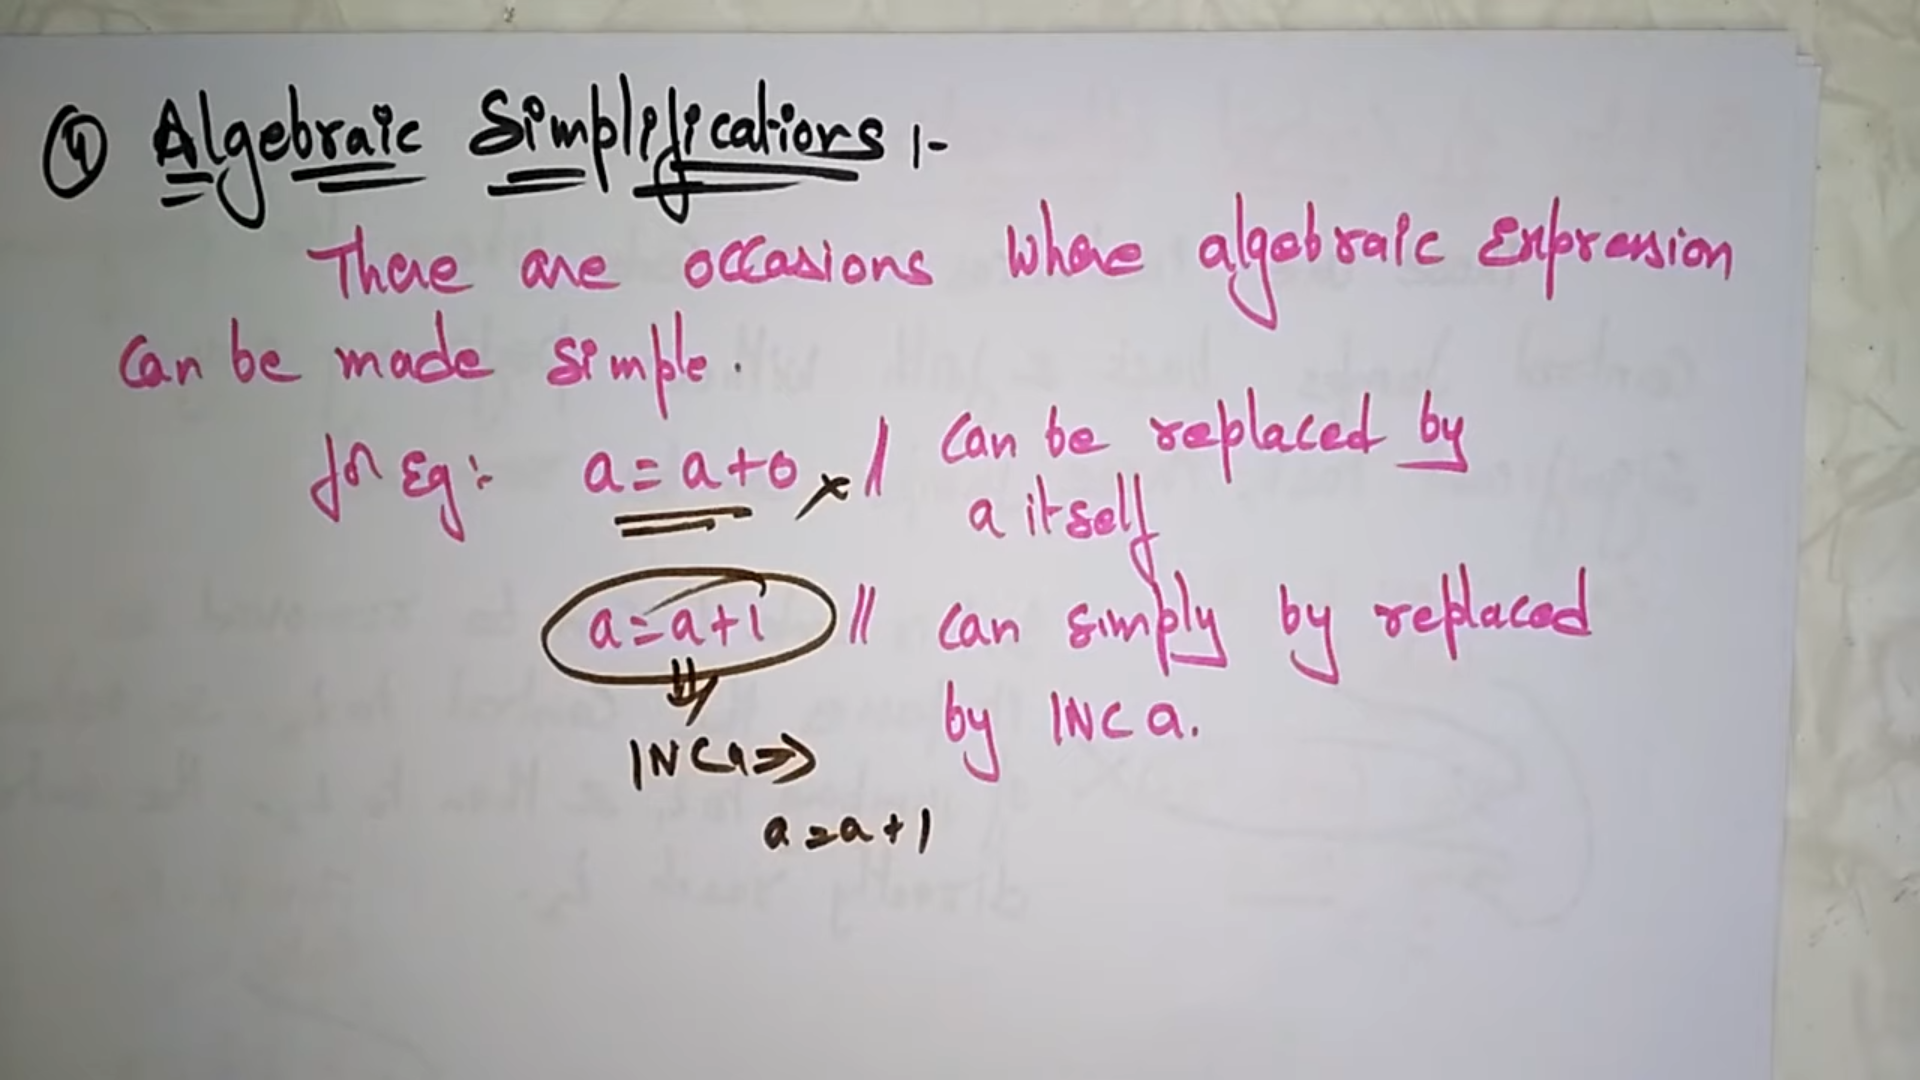 ④ Algebraic Simplifications :-
There are occasions where algebraic Expression
can be made simple.
for Eg:- a=a+0 x // can be replaced by
a itself
a=a+1 // can simply by replaced
by INC a.
INC a⇒
a=a+1